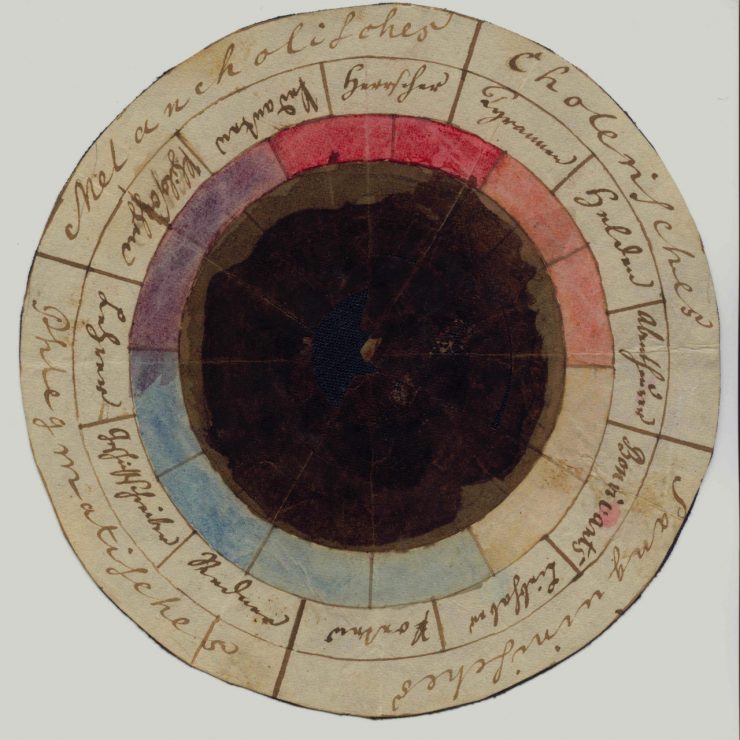 Melancholisches
Cholerisches
Sanguinisches
Phlegmatisches
Herrscher
Tyrannen
Helden
Abentheurer
Bonvivants
Liebhaber
Poeten
Redner
Geschichtschreiber
Lehrer
Philosophen
Pedanten